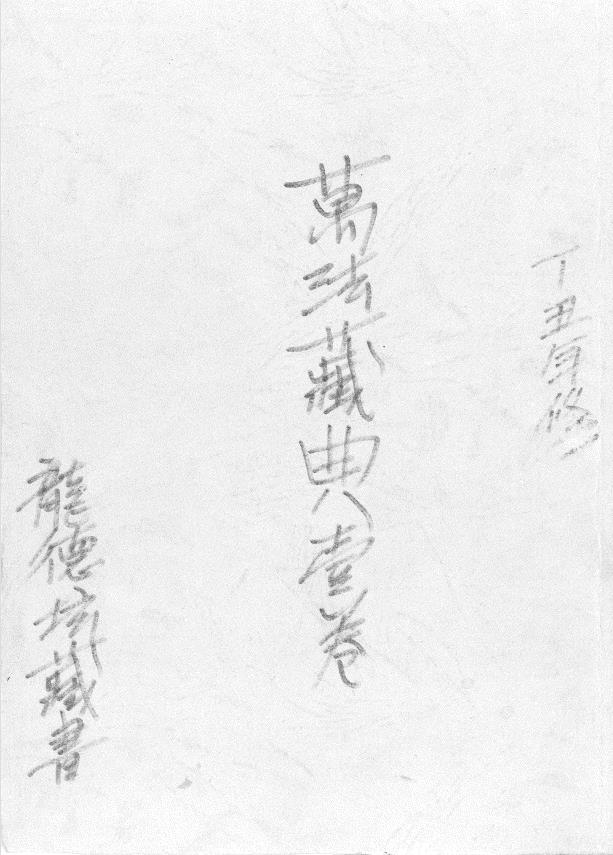 丁丑年修
萬法藏典壹卷
龍德坛藏書